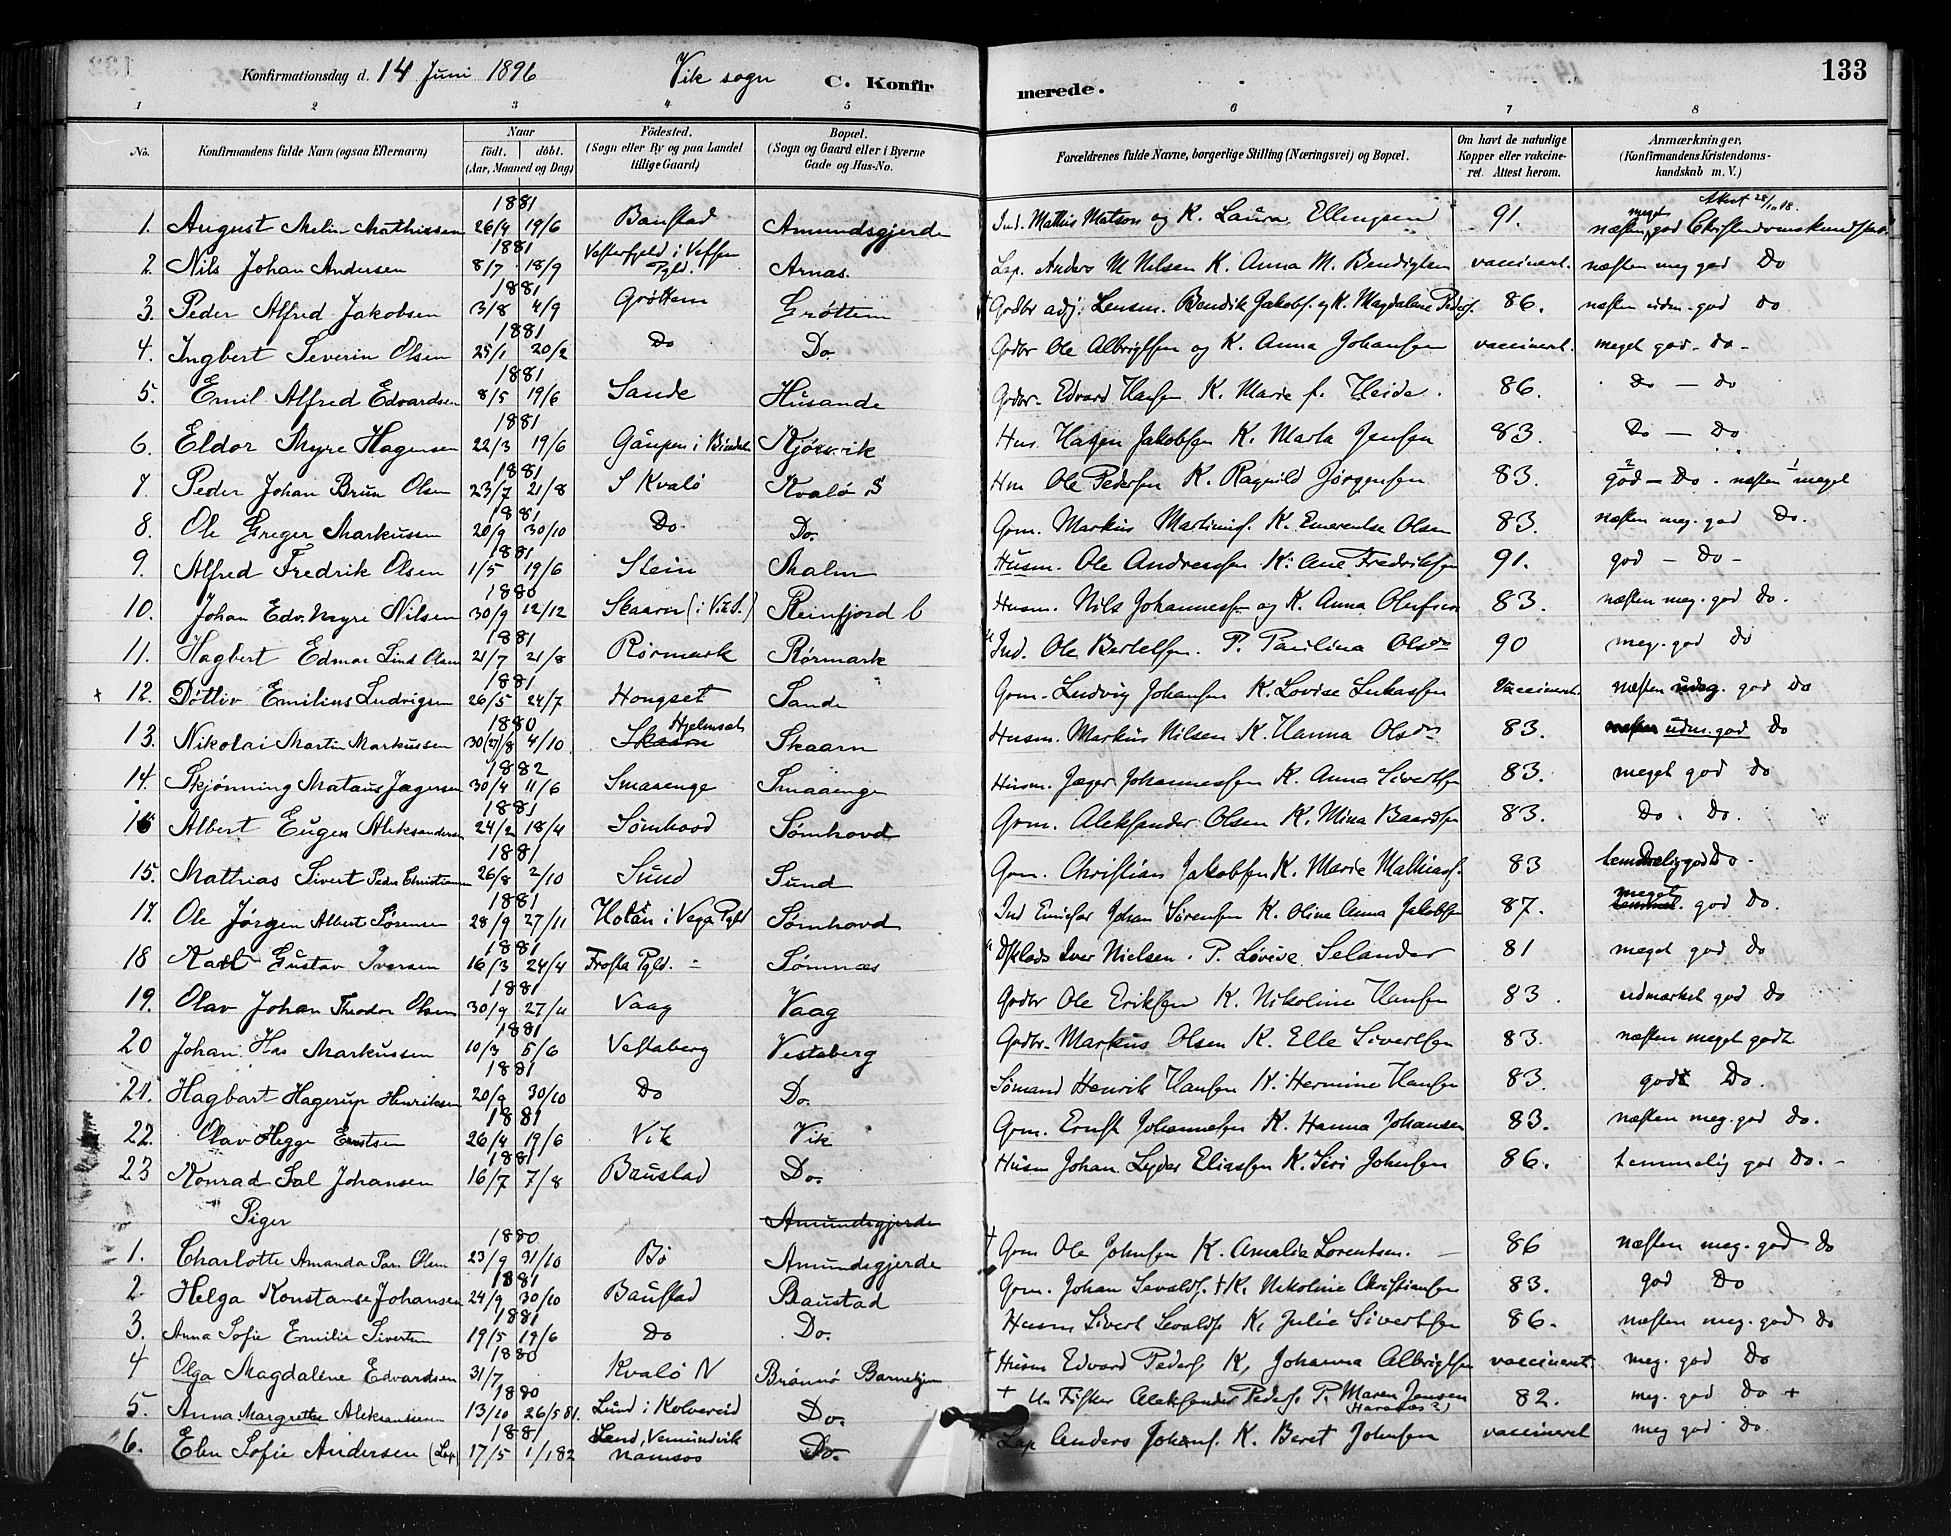 Konfirmationsdag d. 14 Juni 1896 Vik sogn C. Konfirmerede. 133
1 2 3 4 5 6 7 8
No. Konfirmandens fulde Navn (ogsaa Efternavn) Naar født. døbt. (Aar, Maaned og Dag) Fødested. (Sogn eller By og paa Landet tillige Gaard) Bopæl. (Sogn og Gaard eller i Byerne Gade og Hus-No. Forældrenes fulde Navne, borgerlige Stilling (Næringsvei) og Bopæl. Om havt de naturlige Kopper eller vaccineret. Attest herom. Anmærkninger, (Konfirmandens Kristendomskundskab m. V.)
1. August Melin Mathissen 1881 26/4 19/6 Baustad Amundsgjerde Ind. Mattis Matson og K. Laura Ellingsen 91. næsten meget god Christendomskundskab
2. Nils Johan Andersen 1881 8/7 18/9 Vesterfjeld i Vefsen Pgld. Arnas. Lap. Anders M Nilsen K. Anna M. Bendigtsen vaccineret. næsten meg god Do
3. Peder Alfred Jakobsen 1881 3/8 4/9 Grøttem Grøttem Grdbr adj. Lensm. Bendik Jakobs. og K. Magdalene Peders. 86. næsten udm. god do
4. Ingbert Severin Olsen 1881 25/1 20/2 Do Do. Grdbr Ole Albrigtsen og K. Anna Johansen vaccineret. meget god - do -
5. Emil Alfred Edvardsen 1881 8/5 19/6 Sande Husande Grdbr. Edvard Hansen K. Marie f. Heide. 86. Do - do
6. Eldor Myre Hagensen 1881 22/3 19/6 Gaupen i Bindalen Kjørvik Hus. Hagen Jakobsen K. Marta Jensen 83. Do - Do
7. Peder Johan Brun Olsen 1881 23/7 21/8 S Kvalø Kvalø S Hm Ole Pedersen K. Ragnild Jørgensen 83. god - Do. næsten meget
8. Ole Greger Markussen 1881 20/9 30/10 Do Do. Grm. Markus Martinus. K. Emerentse Olsen 83. næsten meg. god Do.
9. Alfred Fredrik Olsen 1881 1/5 19/6 Stein Malm Husm. Ole Andreassen K. Ane Fredriksen 91. god - Do -
10. Johan Edv. Myre Nilsen 1880 30/9 12/12 Skaarn (i Vik S.) Reinfjord Husm. Nils Johannessen og K. Anna Olufsen 83. næsten meg. god Do.
11. Hagbert Edmar Lind Olsen 1881 21/7 21/8 Rørmark Rørmark Ind. Ole Bertelsen. P. Paulina Olsdr 90 meg. god Do
+ 12. Ditlev Emilius Ludvigsen 1881 26/5 24/7 Hongset Sande Grm. Ludvig Johansen K. Lovise Lukassen Vaccineret næsten udmg. god Do
13. Nikolai Martin Markussen 1880 30(27)/8 4/10 Skaarn Hjelmset Skaarn Husm. Markus Nilsen K. Hanna Olsdr 83. næsten udm. god Do
14. Skjønning Mataus Jægersen 1882 30/4 11/6 Smaaenge Smaaenge Husm. Jæger Johannessen K. Anna Sivertsen 83. meget god Do
16 Albert Eugen Aleksandersen 1881 24/2 18/4 Sømhovd Sømhovd Grm. Aleksander Olsen K. Mina Baardsen 83. Do. Do.
15. Mathias Sivert Peder Christiansen 1881 26/8 2/10 Sund Sund Grm. Christian Jakobsen K. Marie Mathias. 83 temmelig god Do.
17. Ole Jørgen Albert Sørensen 1881 28/9 27/11 Holan i Vega Pgld Sømhovd Ind Johan Sørensen K. Oline Anna Jakobsen 87. meget god Do.
18 Karl Gustav Iversen 1881 16/3 24/4 Frosta Pgld. Sømnæs Iver Nielsen. P. Lovise Selander 81 meget god Do
19. Olav Johan Theodor Olsen 1881 30/9 27/11 Vaag Vaag Grdbr Ole Eriksen K. Nikoline Hansen 83. udmærket god Do
20 Johan Has Markussen 1881 10/3 5/6 Vestaberg Vestaberg Grdbr. Markus Olsen K. Elle Sivertsen 83. næsten meget godt
21. Hagbart Hagerup Henriksen 1881 20/9 30/10 Do Do. Sømand Henrik Hansen K. Hermine Hansen 83. god Do.
22. Olav Hegge Ernstsen 1881 26/4 19/6 Vik Vik Grm. Ernst Johannesen K. Hanna Johansen 83. næsten meg. god Do.
23 Konrad Sal Johansen 1881 16/7 7/8 Baustad Do. Husm Johan Lyder Eliassen K. Siri Johnsen 86. temmelig god Do. -
Piger Amundsgjerde
1. Charlotte Amanda Olsen 1880 23/9 31/10 Bø Amundsgjerde Grm Ole Johnsen K. Amalie Lorentsen. 86 næsten meg. god Do
2. Helga Konstanse Johansen 1881 24/9 30/10 Baustad Baustad Grm. Johan Sevalds. + K. Nikoline Christiansen 83. god Do
3. Anna Sofie Emilie Sivertsen 1881 19/5 19/6 Do Do. Husm Sivert Sevalds K. Julie Sivertsen 86. næsten meg. god Do
4 Olga Magdalene Edvardsen 1880 31/7 Kvalø N Brønnø Barnehjem Husm Edvard Peders K. Johanna Albrigtsen vaccineret meg. god Do
5. Anna Margrethe Aleksandersen 1880 13/10 26/5 81. Lund i Kolvereid Do. + U. Fisker Aleksander Peders. P. Maren Jensen 82. meg. god Do +
6. Elen Sofie Andersen (Lap) 1881 17/5 1/1 82 Vemundvik Namsos Do. Lap Anders Johans. K. Beret Johnsen vaccineret meg god Do